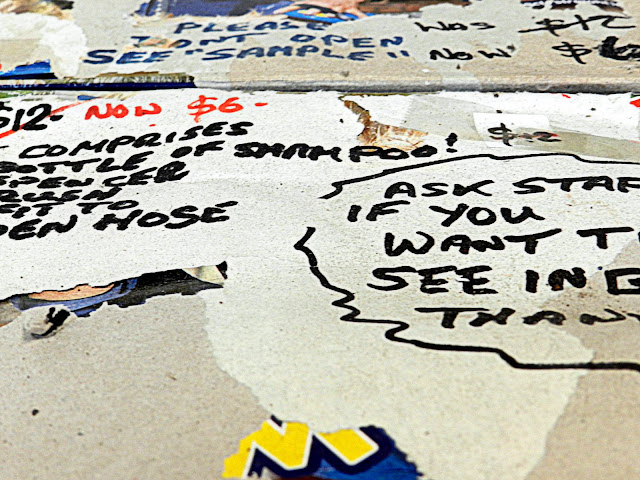 PLEASE
DON'T OPEN
SEE "SAMPLE"
WAS $12
NOW $6
$12- NOW $6-
COMPRISES
BOTTLE OF SHAMPOO!
HOSE
$12
ASK STAF
IF YOU
WANT T
SEE IN
THAN